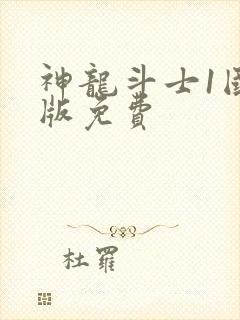 神龍斗士1国
版免費
杜羅